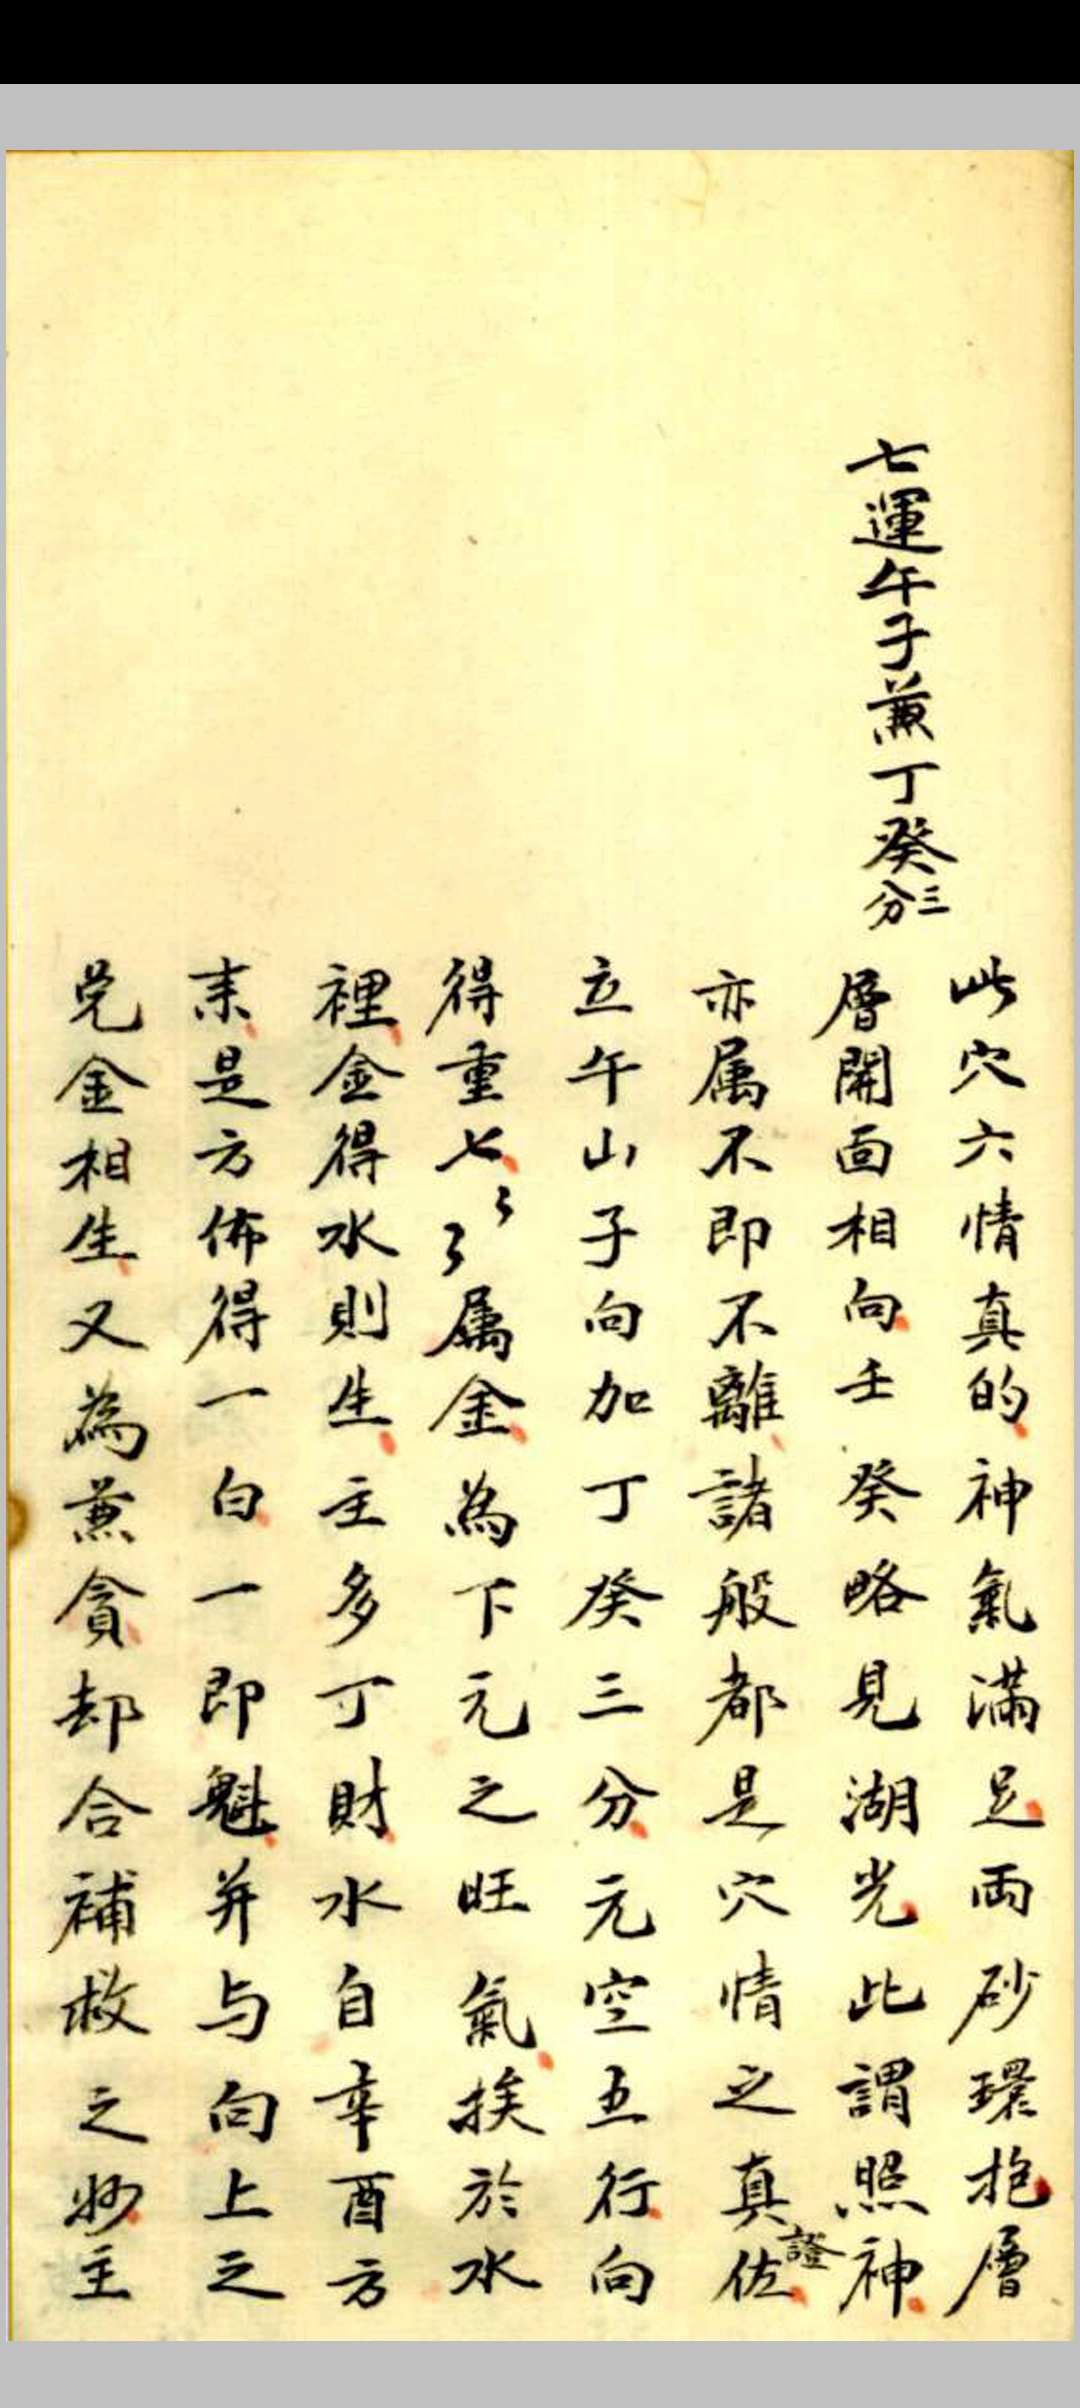 七運午子兼丁癸三分
此穴六情真的神氣滿足両砂環抱層
層開面相向壬癸略見湖光此謂照神
亦属不即不離諸般都是穴情之真佐證
立午山子向加丁癸三分元空五行向
得重七々々属金為下元之旺氣挨於水
裡金得水則生主多丁財水自辛酉方
来是方佈得一白一即魁并与向上之
兑金相生又為兼貪却合補救之妙主